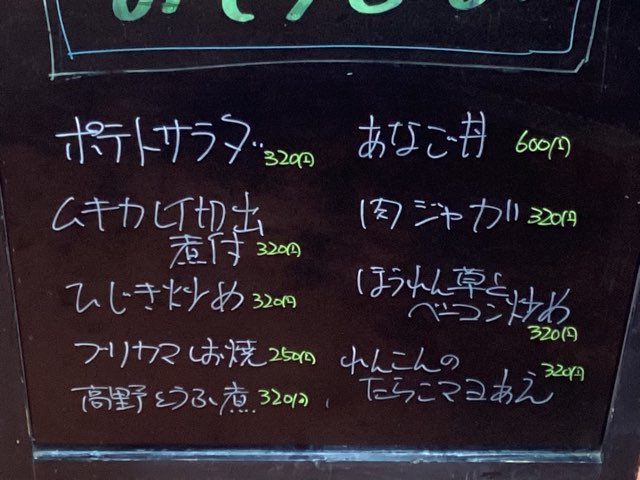 ポテトサラダ 320円
ムキカレイ切出
煮付 320円
ひじき炒め 320円
ブリカマしお焼 250円
高野とうふ煮 320円
あなご丼 600円
肉ジャガ 320円
ほうれん草と
ベーコン炒め
320円
れんこんの
たらこマヨあえ 320円